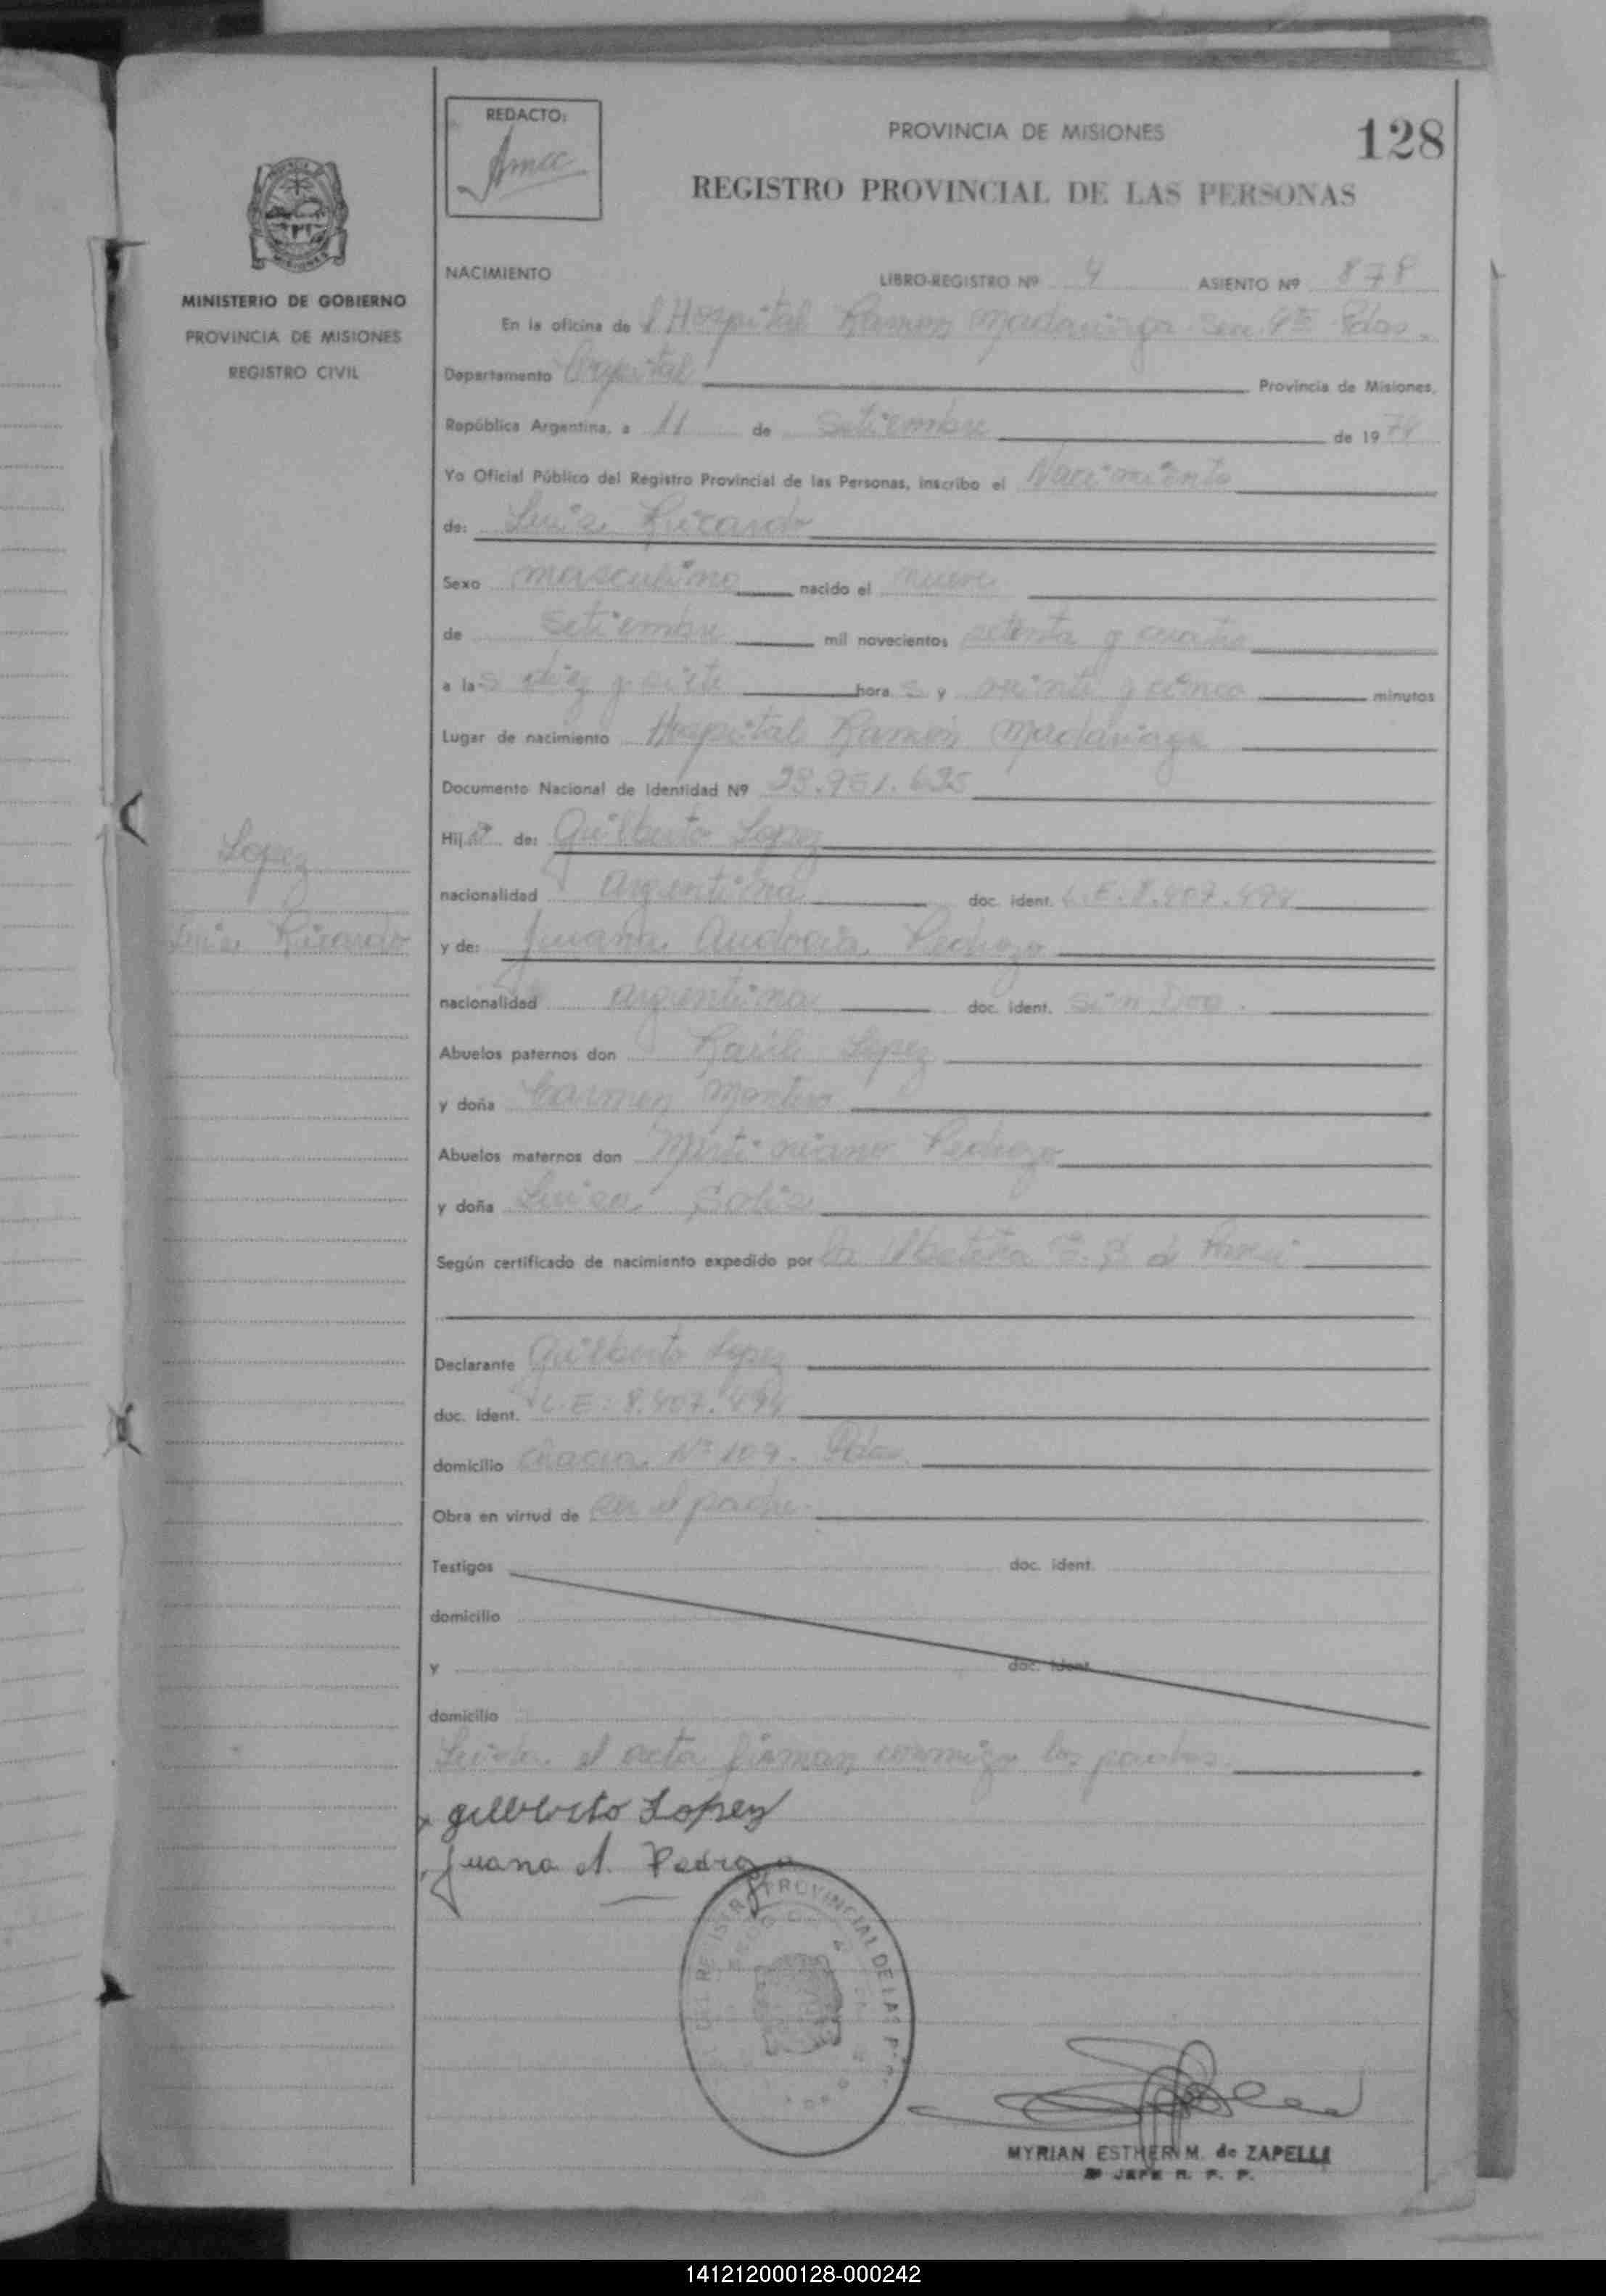 REDACTO:
PROVINCIA DE MISIONES
128
REGISTRO PROVINCIAL DE LAS PERSONAS
MINISTERIO DE GOBIERNO
PROVINCIA DE MISIONES
REGISTRO CIVIL
NACIMIENTO LIBRO-REGISTRO Nº 4 ASIENTO Nº 878
En la oficina de l Hospital Ramon Madariaga Pdas.
Departamento Capital Provincia de Misiones,
República Argentina, a 11 de Setiembre de 1974
Yo Oficial Público del Registro Provincial de las Personas, inscribo el Nacimiento
de: Luis Ricardo
Sexo masculino nacido el nueve
de Setiembre mil novecientos setenta y cuatro
a las diez y siete horas y veinte y cinco minutos
Lugar de nacimiento Hospital Ramon Madariaga
Documento Nacional de Identidad Nº 23.951.635
Hijo de: Guilberto Lopez
nacionalidad argentina doc. ident. L.E. 8.407.494
Lopez
Luis Ricardo
y de: Juana Audocia Pedrozo
nacionalidad argentina doc. ident. Sin Doc.
Abuelos paternos don Raul Lopez
y doña Carmen Montero
Abuelos maternos don Pedrozo
y doña Luisa Solis
Según certificado de nacimiento expedido por la
Declarante Guilberto Lopez
doc. ident. L.E: 8.407.494
domicilio Chacra Nº 109. Pdas.
Obra en virtud de ser el padre.
Testigos doc. ident.
domicilio
y doc. ident.
domicilio
Leida el acta firman conmigo los padres.
gilberto Lopez
Juana A. Pedrozo
DEL REGISTRO PROVINCIAL DE LAS P.
MYRIAN ESTHER M. de ZAPELLI
JEFE R. P. P.
141212000128-000242